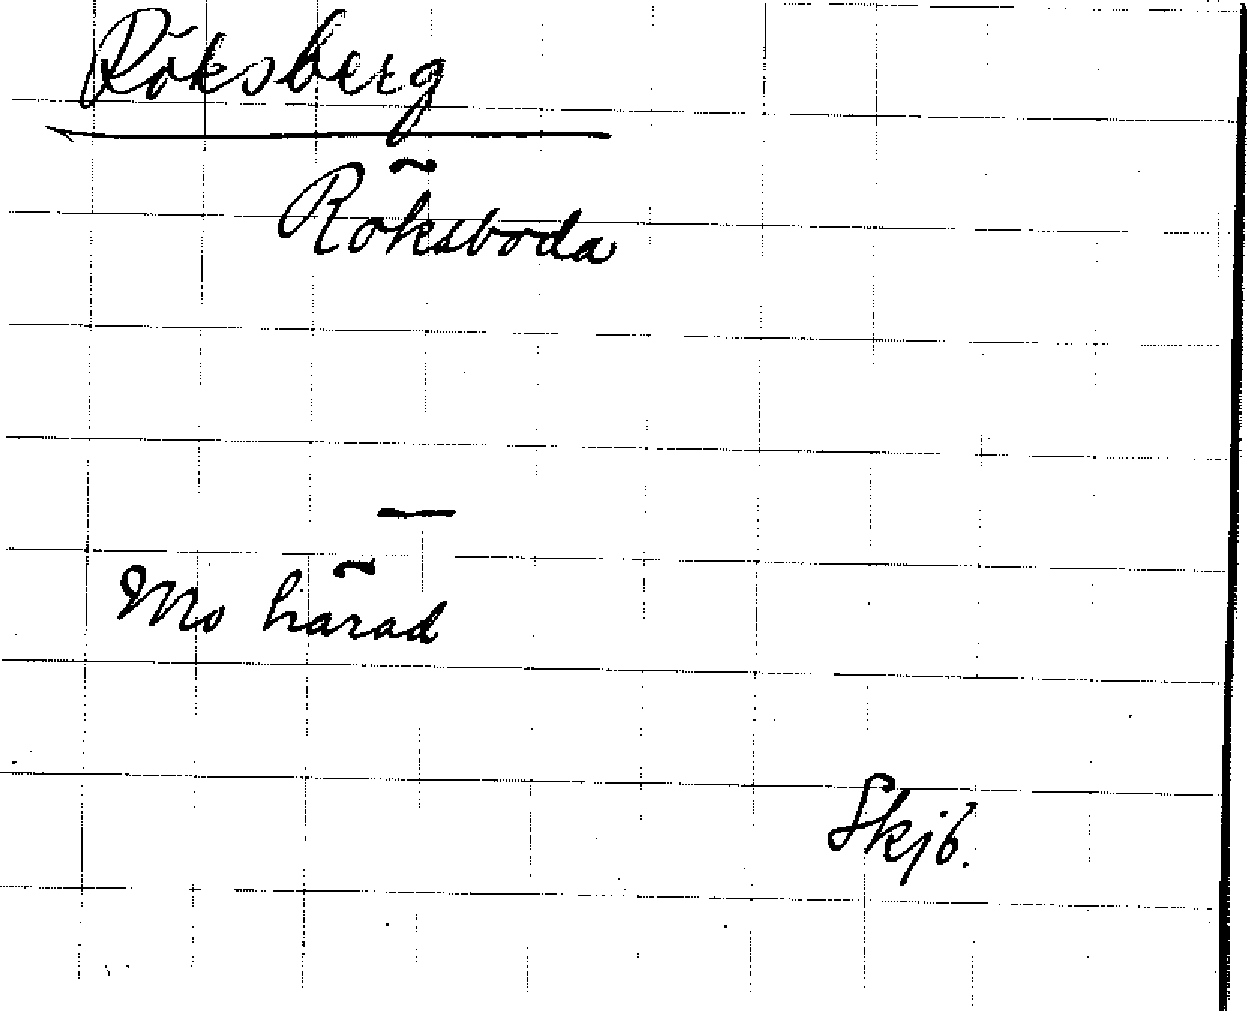 Röksberg
Röksboda
Mo härad
Skjb.